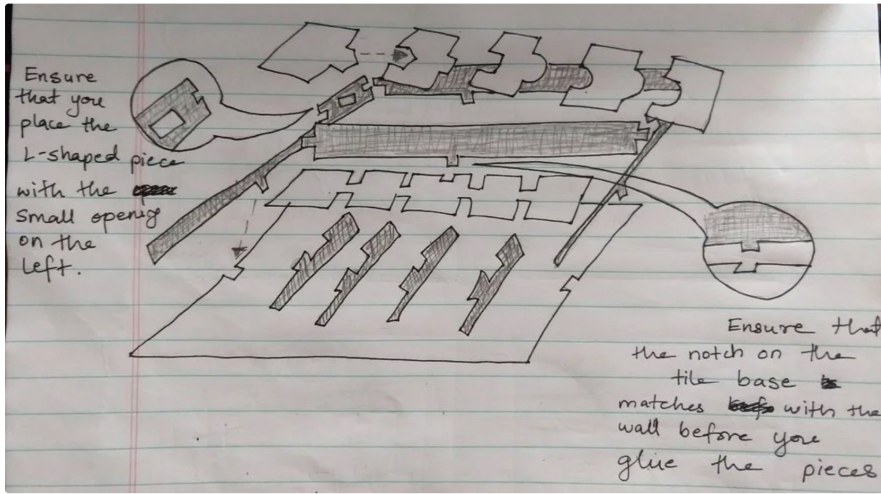 Ensure
that you
place the
L-shaped piece
with the
small opening
on the
left.
Ensure that
the notch on the
tile base
matches with the
wall before you
glue the pieces